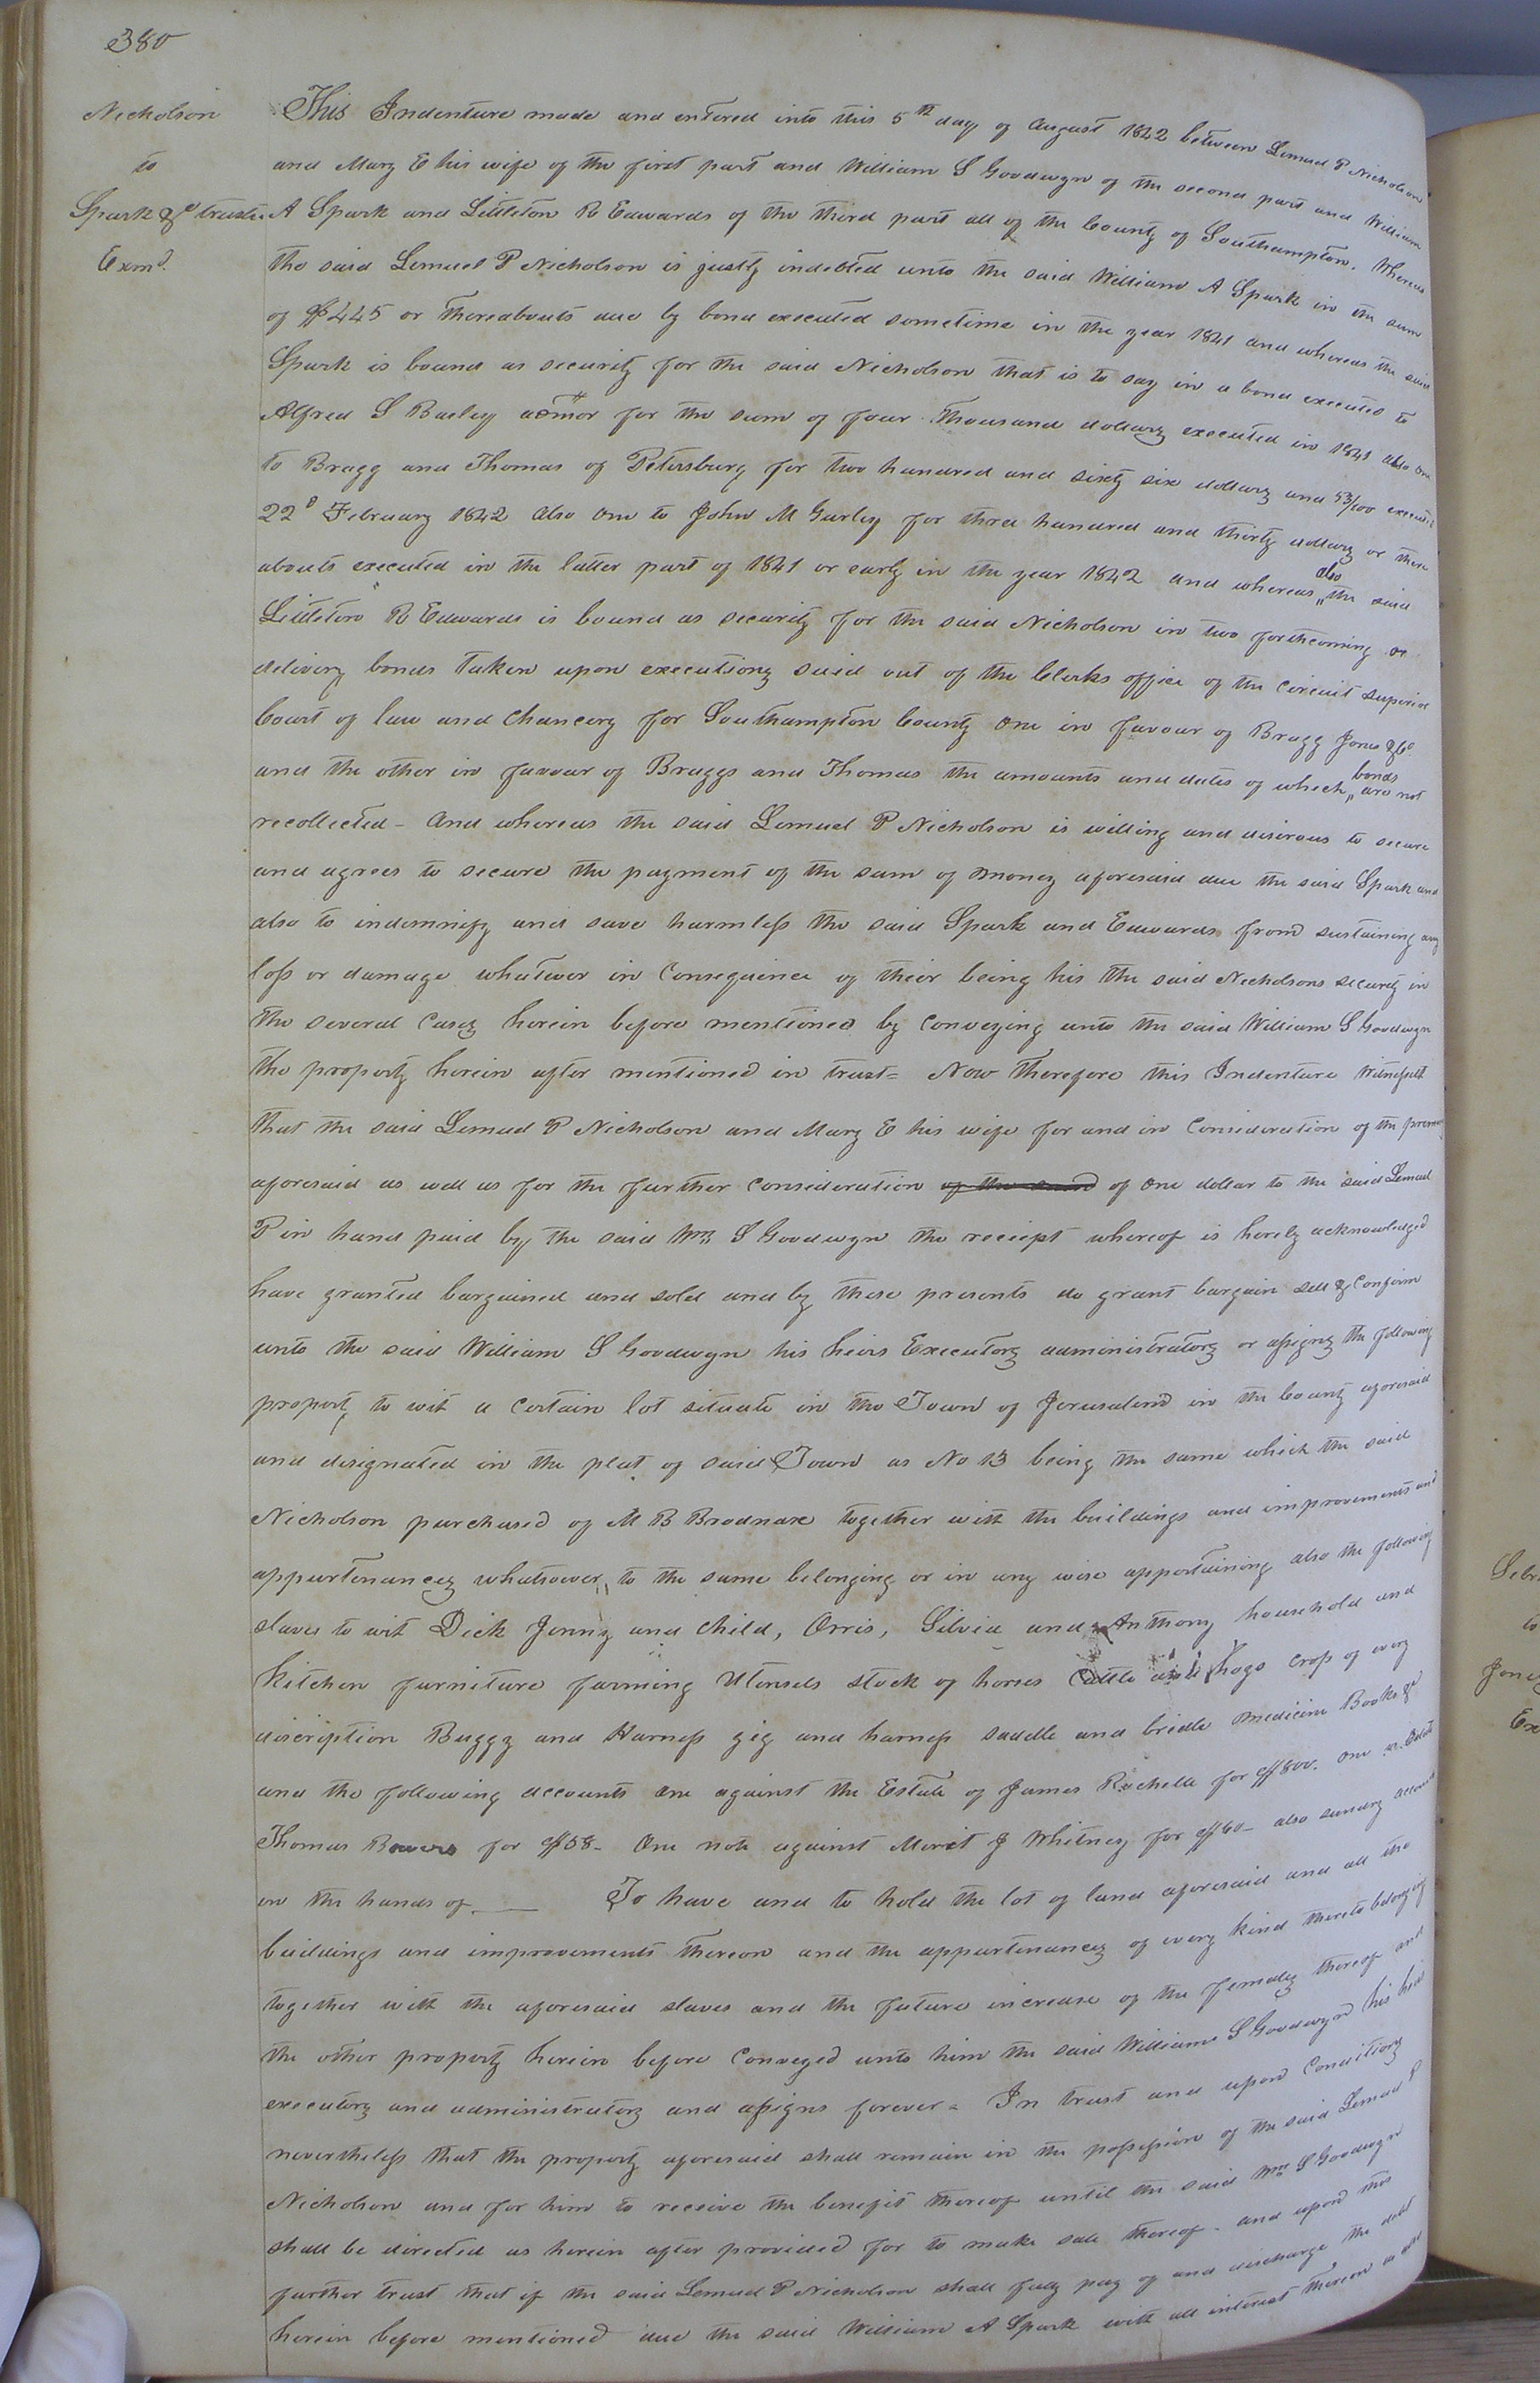 380
Nicholson
to
Spark &c trustee
Exmd.
This Indenture made and entered into this 5th day of August 1842 between Lemuel P Nicholson
and Mary E his wife of the first part and William S Goodwyn of the second part and William
A Spark and Littleton R Edwards of the third part all of the County of Southampton. Whereas
the said Lemuel P Nicholson is justly indebted unto the said William A Spark in the sum
of $445 or thereabouts due by bond executed sometime in the year 1841 and whereas the said
Spark is bound as security for the said Nicholson that is to say in a bond executed to
Alfred S Barley admor for the sum of four thousand dollars executed in 1841 also one
to Bragg and Thomas of Petersburg for two hundred and sixty six dollars and 53/100 executed
22d February 1842 also one to John M Gurley for three hundred and thirty dollars or there
abouts executed in the latter part of 1841 or early in the year 1842 and whereas also the said
Littleton R Edwards is bound as security for the said Nicholson in two forthcoming or
delivery bonds taken upon executions sued out of the Clerks office of the Circuit superior
Court of law and Chancery for Southampton County one in favour of Bragg Jones & Co
and the other in favour of Braggs and Thomas the amounts and dates of which bonds are not
recollected - And whereas the said Lemuel P Nicholson is willing and desirous to secure
and agrees to secure the payment of the sum of money aforesaid due the said Spark and
also to indemnify and save harmless the said Spark and Edwards from sustaining any
loss or damage whatever in consequence of their being his the said Nicholsons security in
the several cases herein before mentioned by conveying unto the said William S Goodwyn
the property herein after mentioned in trust = Now Therefore this Indenture Witnesseth
that the said Lemuel P Nicholson and Mary E his wife for and in Consideration of the premises
aforesaid as well as for the further consideration of the sum of one dollar to the said Lemuel
P in hand paid by the said Wm S Goodwyn the receipt whereof is hereby acknowledged
have granted bargained and sold and by these presents do grant bargain sell & confirm
unto the said William S Goodwyn his heirs Executors administrators or assigns the following
property to wit a certain lot situate in the Town of Jerusalem in the County aforesaid
and designated in the plat of said Town as No 13 being the same which the said
Nicholson purchased of M B Brodnax together with the buildings and improvements and
appurtenances whatsoever to the same belonging or in any wise appertaining also the following
slaves to wit Dick Jenny and child, Orris, Silvia and Anthony household and
kitchen furniture farming Utensels stock of horses Cattle and hogs crop of every
discription Buggy and Harness gig and harness saddle and bridle medicine Books &c
and the following accounts one against the Estate of James Rochelle for $800. one
Thomas Bowers for $58 - One note against Merit J Whitney for $60 - also sundry accounts
in the hands of ___ To have and to hold the lot of land aforesaid and all the
buildings and improvements thereon and the appurtenances of every kind thereto belonging
together with the aforesaid slaves and the future increase of the females thereof and
the other property herein before conveyed unto him the said William S Goodwyn his heirs
executors and administrators and assigns forever = In trust and upon Conditions
nevertheless that the property aforesaid shall remain in the possession of the said Lemuel P
Nicholson and for him to receive the benefit thereof until the said Wm S Goodwyn
shall be directed as herein after provided for to make sale thereof - and upon this
further trust that if the said Lemuel P Nicholson shall fully pay of and discharge the debt
herein before mentioned due the said William A Spark with all interest thereon
Jones
to